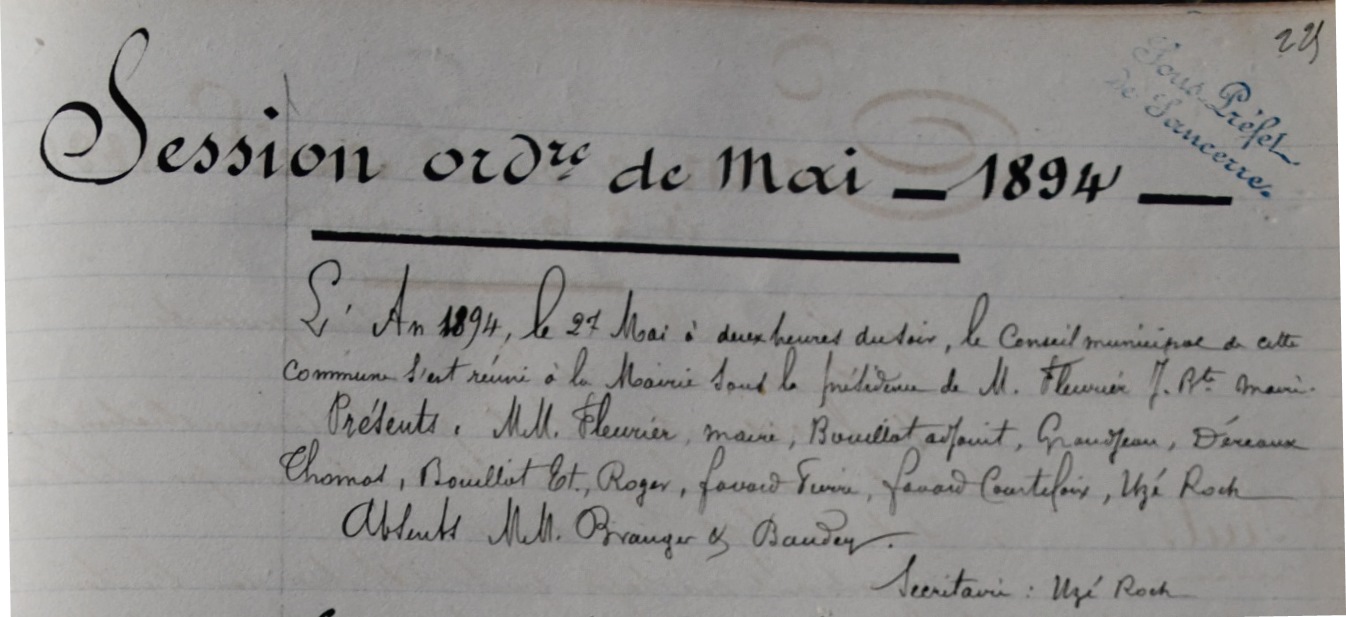 225
Sous-Préfet
de Sancerre.
Session ordre de Mai — 1894 —
L'An 1894, le 27 Mai à deux heures du soir, le Conseil municipal de cette
commune s'est réuni à la Mairie sous la présidence de M. Fleurier J. Bte maire.
Présents. MM. Fleurier, maire, Bouillot adjoint, Grandjean, Déreaux
Thomas, Bouillot Et., Roger, favard Pierre, favard Courtefoix, Uzé Roch
Absents MM. Branger & Baudey.
Secrétaire : Uzé Roch